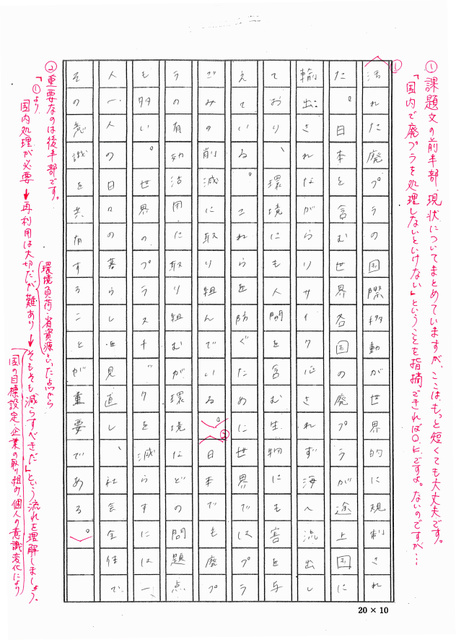 ①課題文の前半部、現状についてまとめていますが、ここはもっと短くても大丈夫です。
「国内で廃プラを処理しないといけない」ということを指摘できればOKですよ。ないのですが…
①
汚れた廃プラの国際移動が世界的に規制され
た。日本を含む世界各国の廃プラが途上国に
輸出されながらリサイクルされず海へ流出し
ており、環境にも人間を含む生物にも害を与
えている。これを防ぐために世界では廃プラ
ごみの削減に取り組んでいる。日本でも廃プ
②
ラの有効活用に取り組むが環境などの問題点
も多い。世界のプラスチックを減らすには一
人一人の日々の暮らしを見直し、社会全体で
その意識を共有することが重要である。
②重要なのは後半部です。
「①より国内処理が必要→再利用は大切だが難あり→そもそも減らすべきだ」という流れを理解しましょう。
環境負荷・省資源といった点から
国の目標設定、企業の取り組み、個人の意識変化により
20 × 10